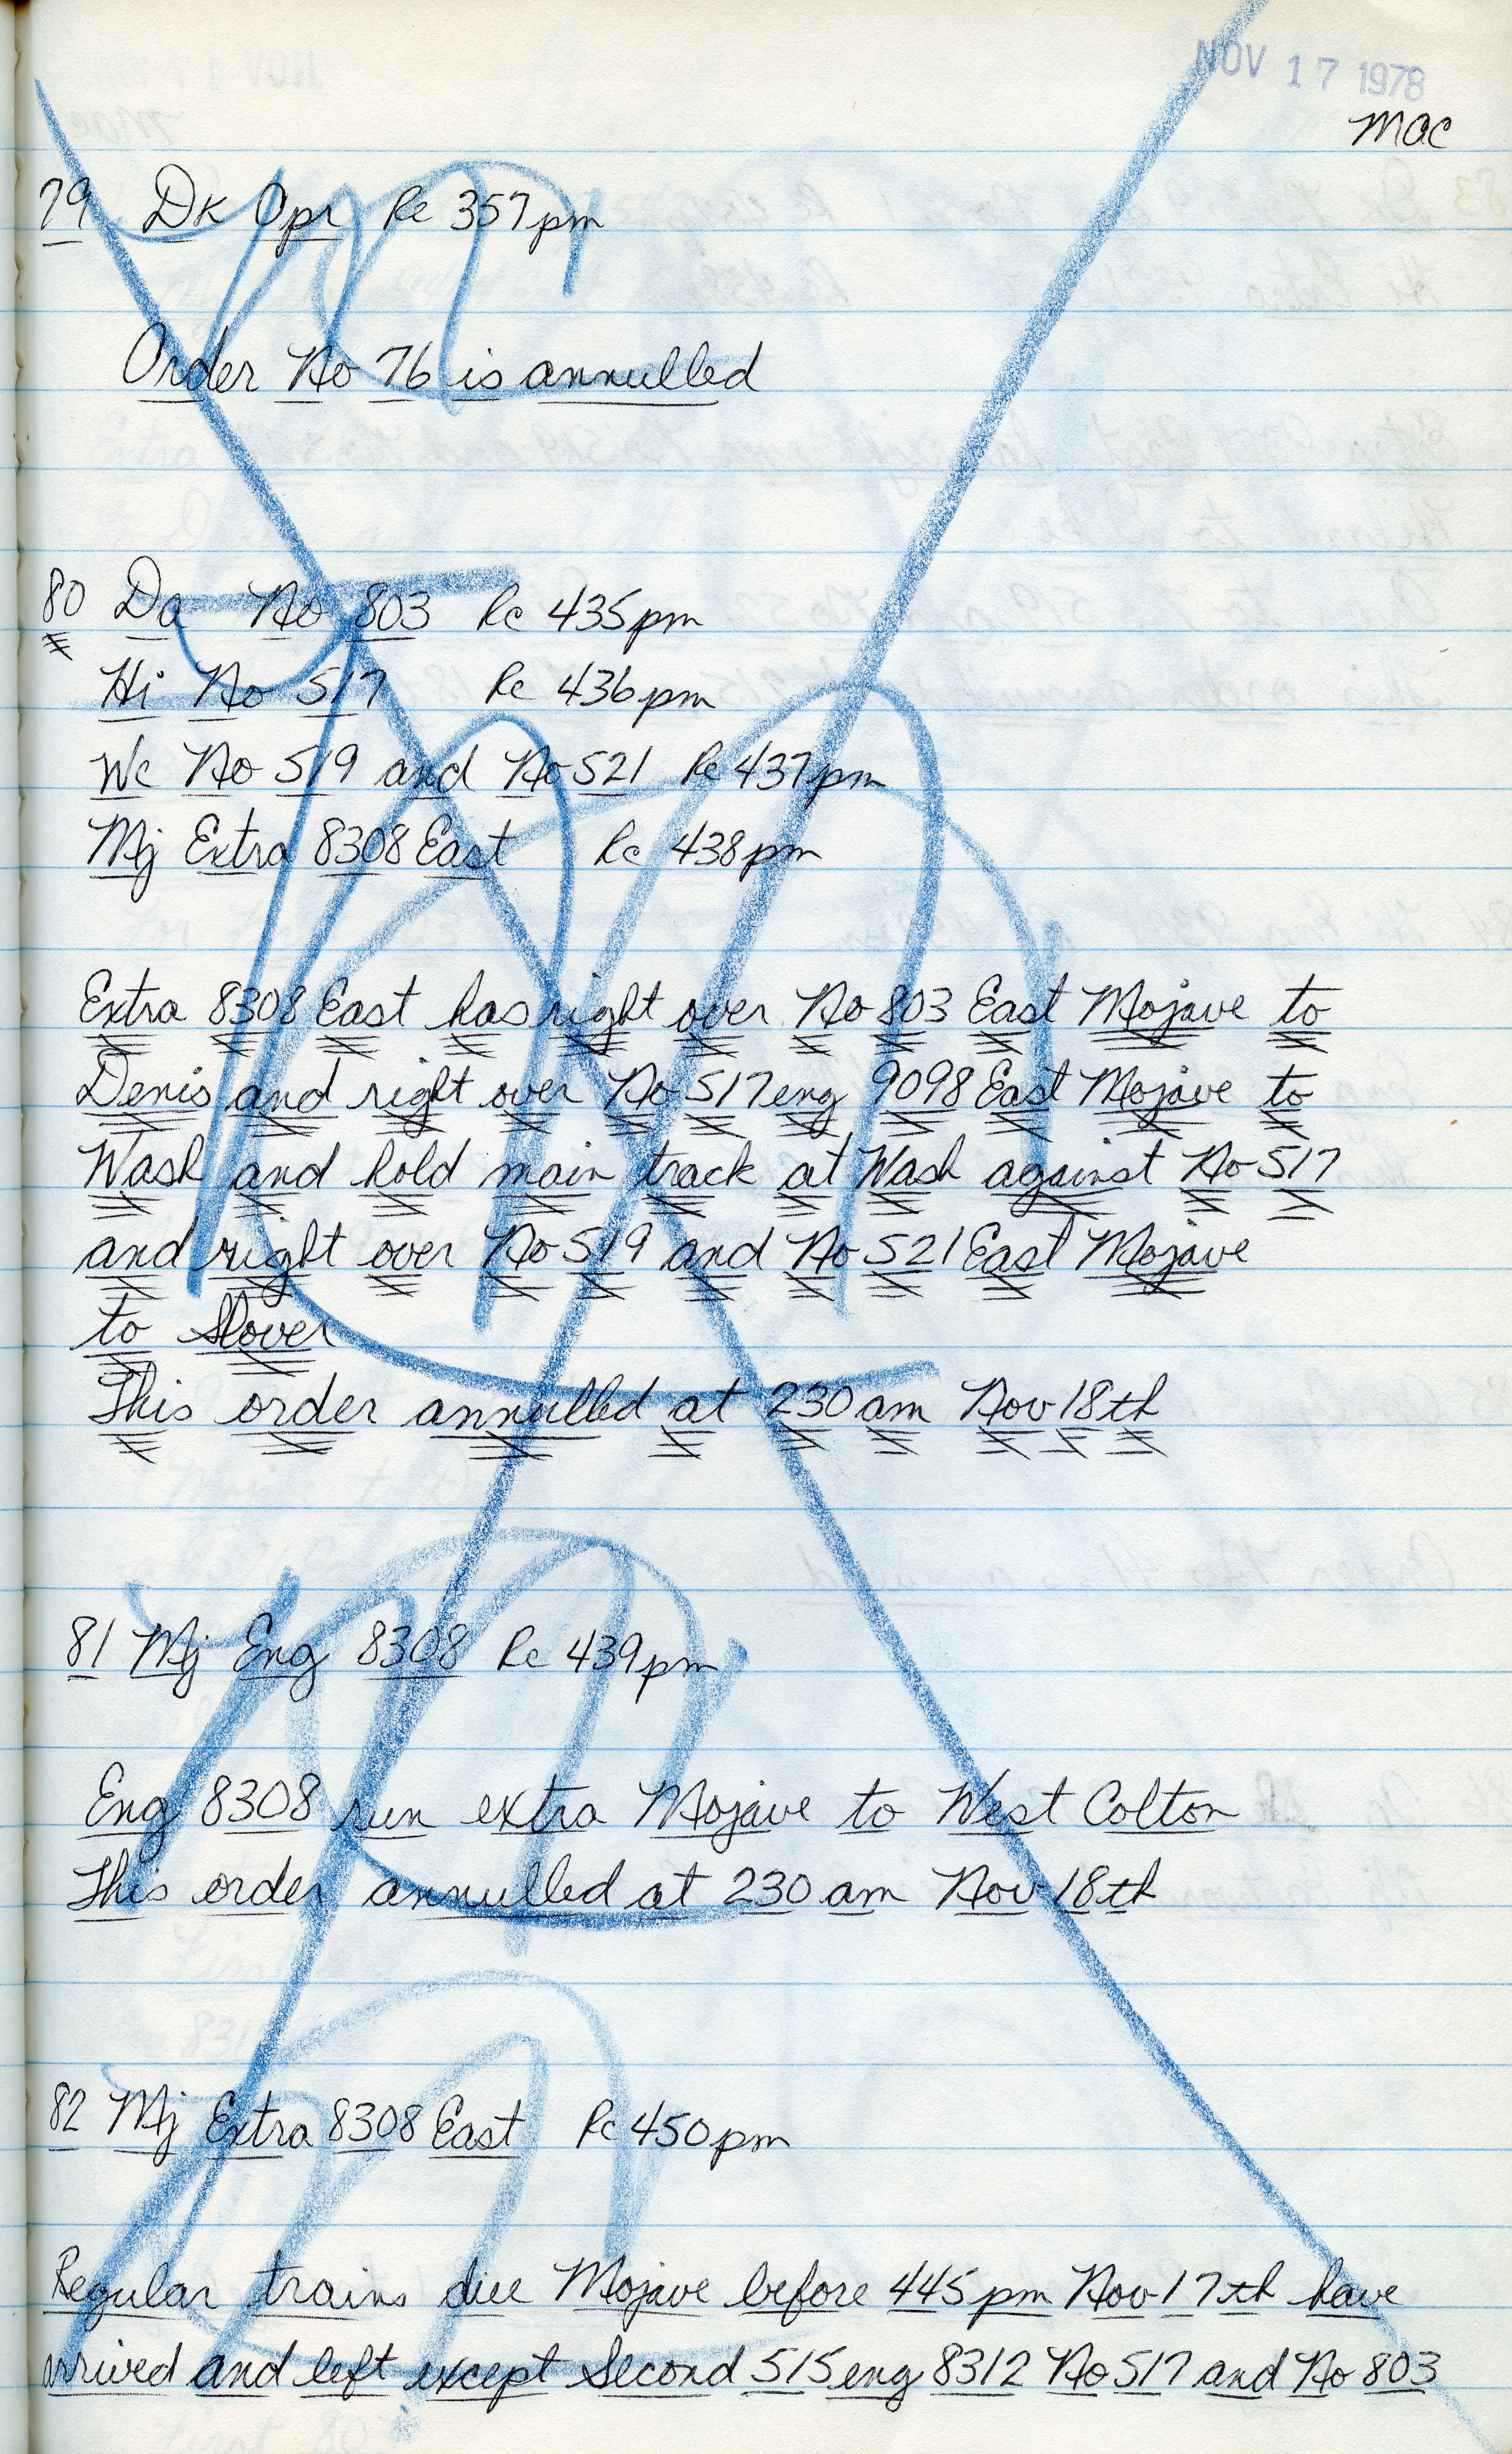 NOV 17 1978
mac
79 Dk Opr Rc 357pm
Order No 76 is annulled
80 Da No 803 Rc 435pm
Hi No 517 Rc 436pm
Wc No 519 and No 521 Rc 437pm
Mj Extra 8308 East Rc 438pm
Extra 8308 East has right over No 803 East Mojave to
Denis and right over No 517 eng 9098 East Mojave to
Wash and hold main track at Wash against No 517
and right over No 519 and No 521 East Mojave
to Slover
This order annulled at 230 am Nov 18th
81 Mj Eng 8308 Rc 439pm
Eng 8308 run extra Mojave to West Colton
This order annulled at 230 am Nov 18th
82 Mj Extra 8308 East Rc 450pm
Regular trains due Mojave before 445pm Nov 17th have
arrived and left except Second 515 eng 8312 No 517 and No 803